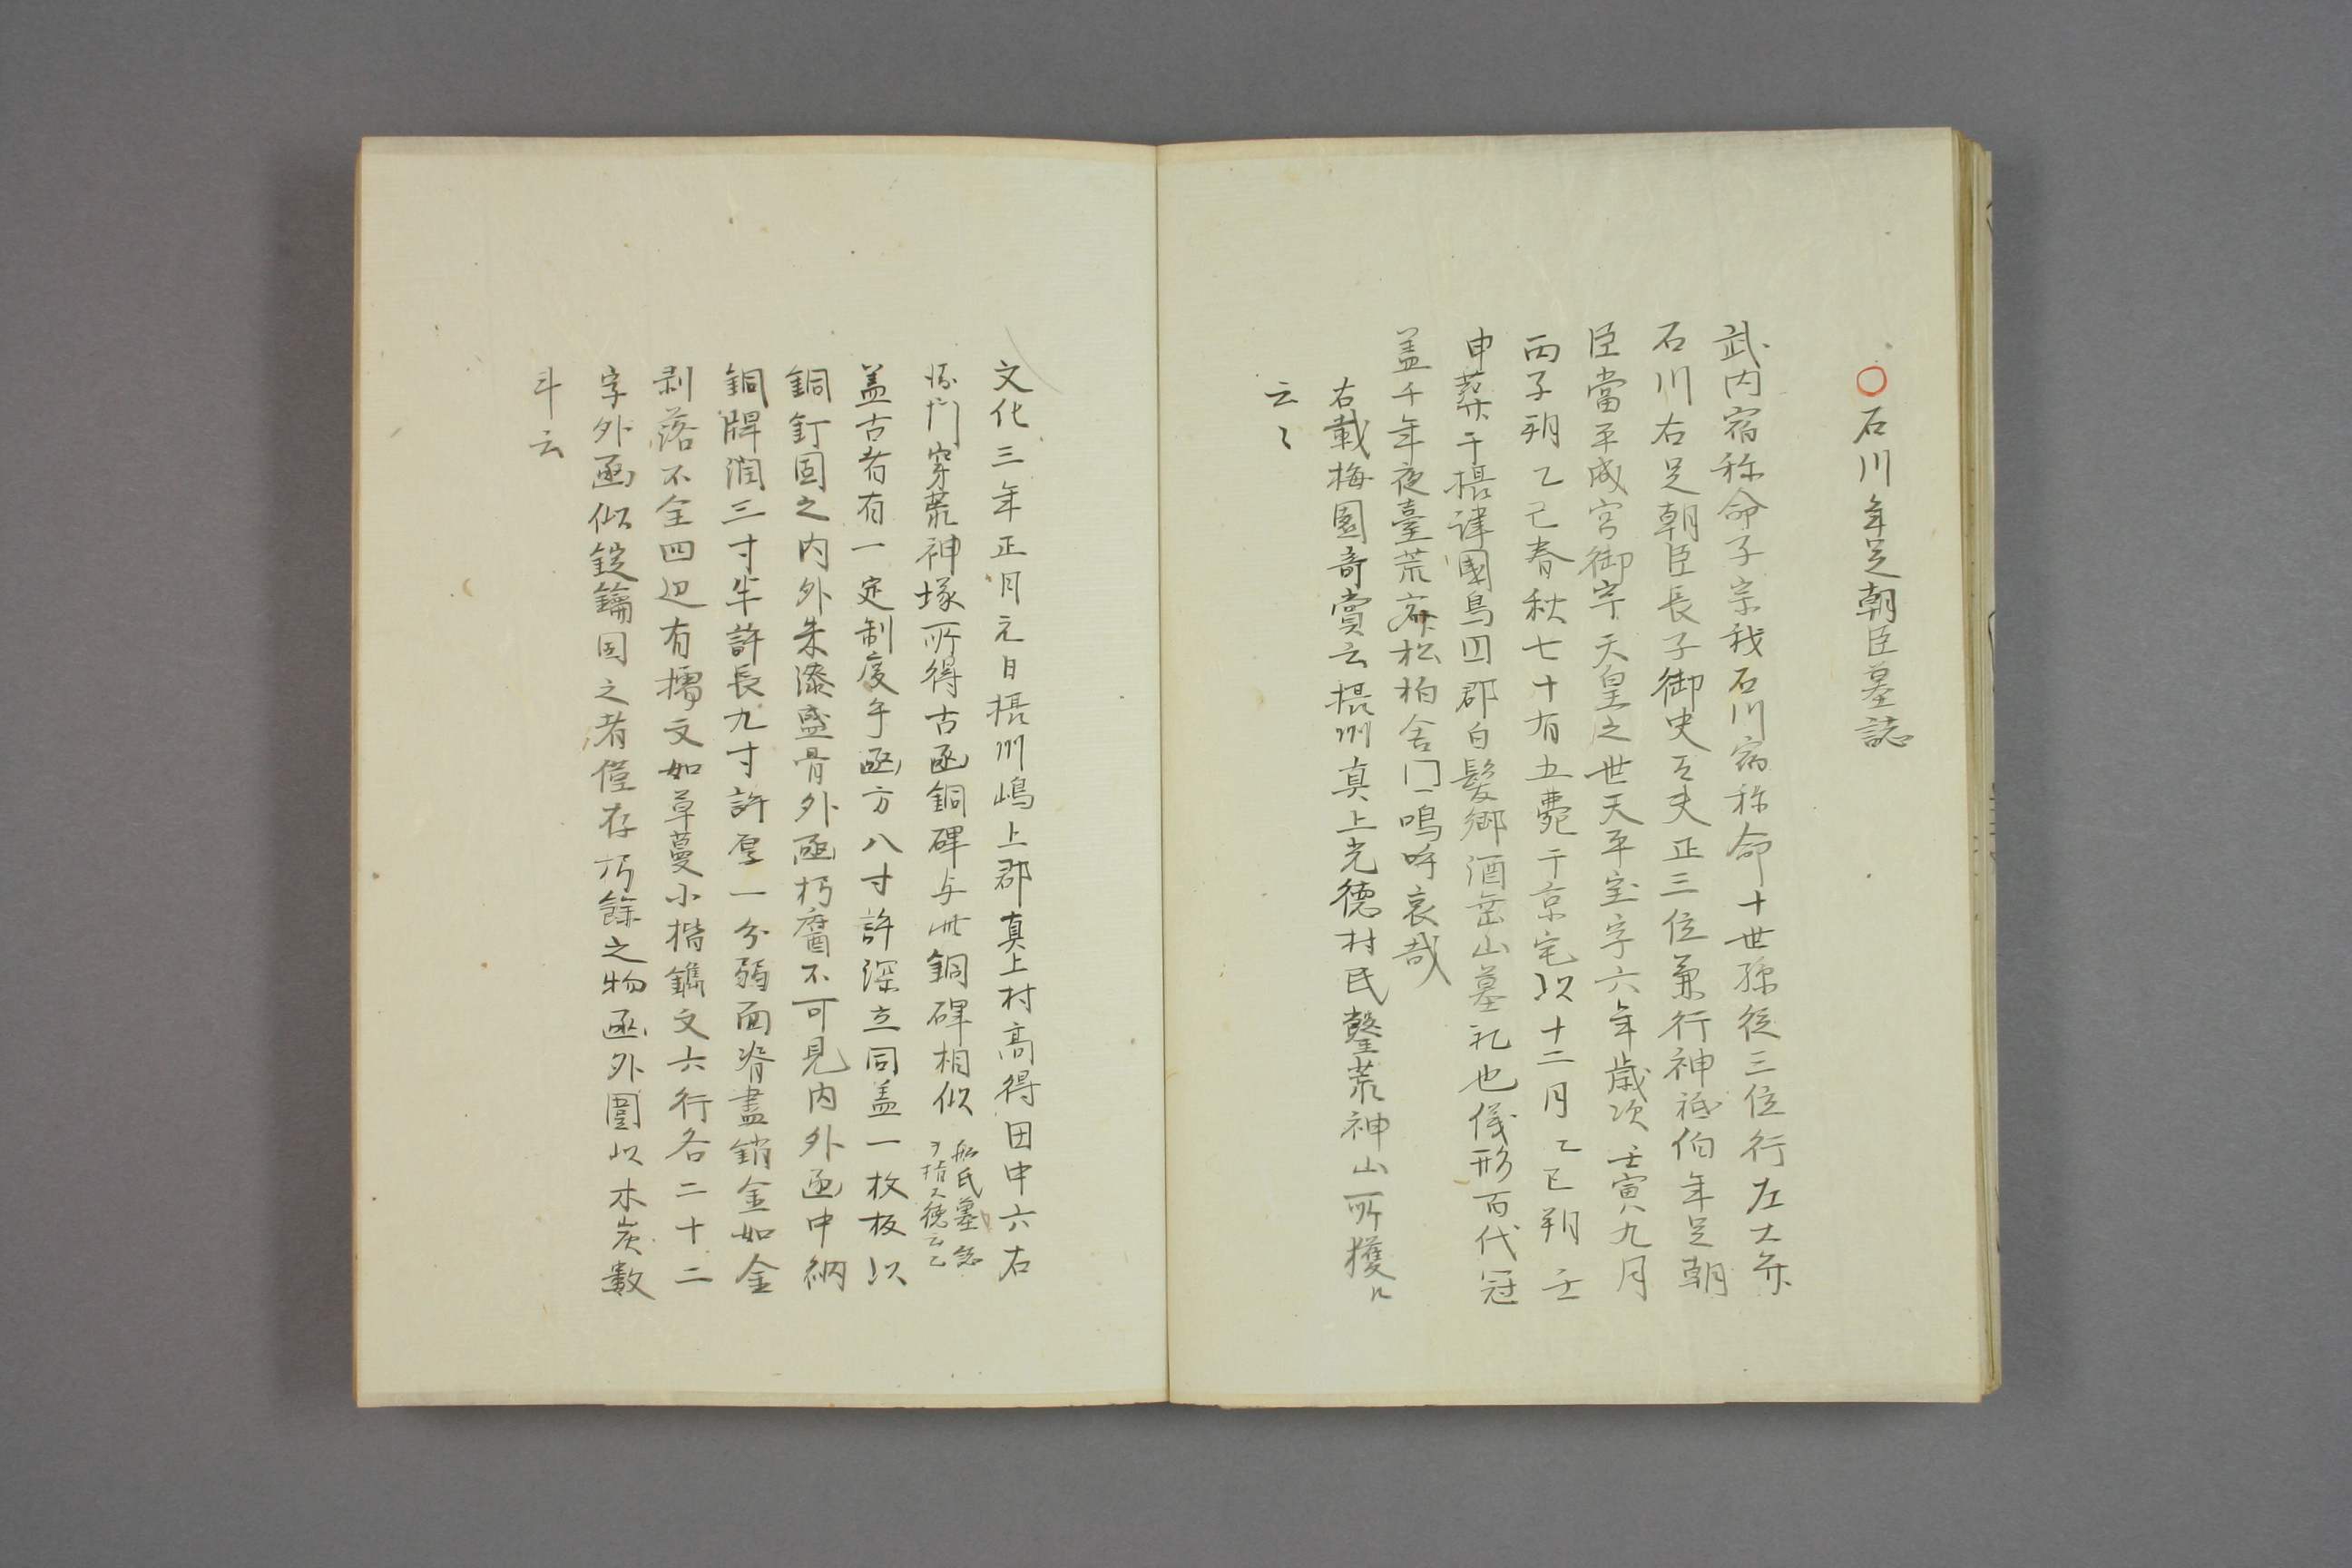 ○石川年足朝臣墓誌
武内宿祢命子宗我石川宿祢命十世孫從三位行左大弁
石川石足朝臣長子御史大夫正三位兼行神祇伯年足朝
臣當平成宮御宇天皇之世天平宝字六年歳次壬寅九月
丙子朔乙巳春秋七十有五薨于京宅以十二月乙巳朔壬
申葬于摂津國島四郡白髪郷酒垂山墓礼也儀形百代冠
盖千年夜臺荒寂松柏含門嗚呼哀哉
右載梅園奇賞云摂州真上光徳村民鑿荒神山所獲ト
云々
文化三年正月元日摂州嶋上郡真上村高得田中六右
衛門穿荒神塚所得古函銅碑与此銅碑相似
船氏墓誌
ヲ指ス徳云乙
盖古者有一定制度乎函方八寸許深立同盖一枚板以
銅釘固之内外朱漆盛骨外函朽腐不可見内外函中納
銅牌潤三寸半許長九寸許厚一分弱面脊盡銷金如金
剥落不全四辺有擣文如草蔓小楷鐫文六行各二十二
字外函似錠鑰固之者僅存朽餘之物函外圍以木炭數
斗云